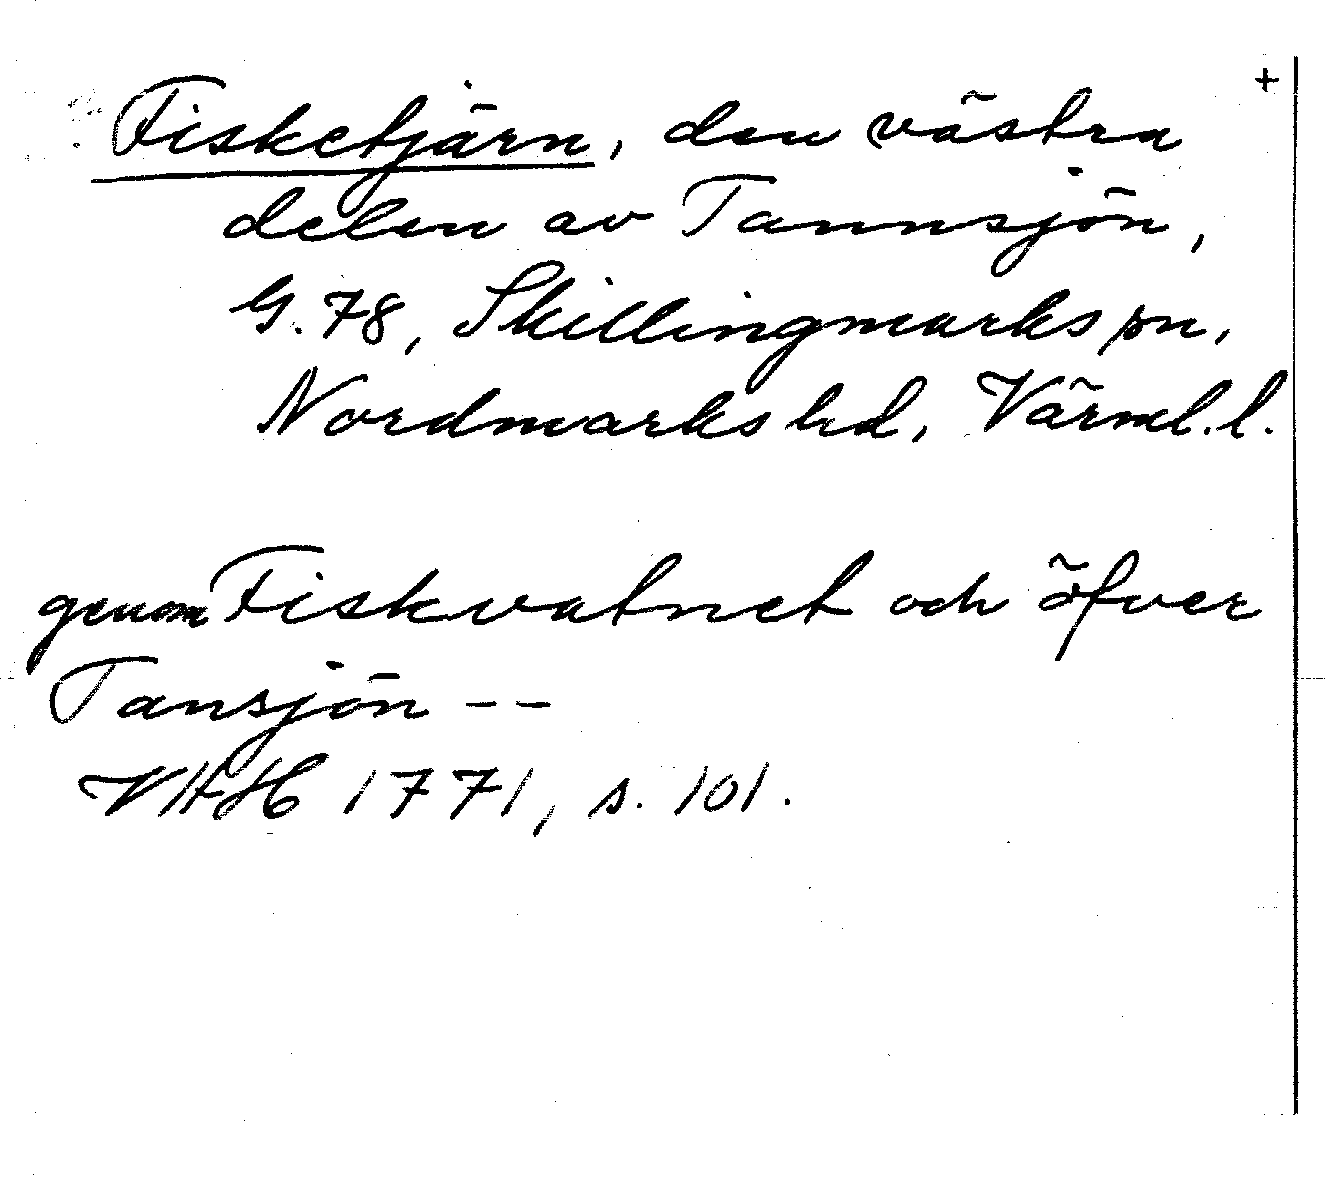 +
Fisketjärn, den västra
delen av Tannsjön,
G.78, Skillingmarks sn,
Nordmarks hd, Värml.l.
genom Fiskvatnet och öfver
Tansjön --
VHH 1771, s. 101.